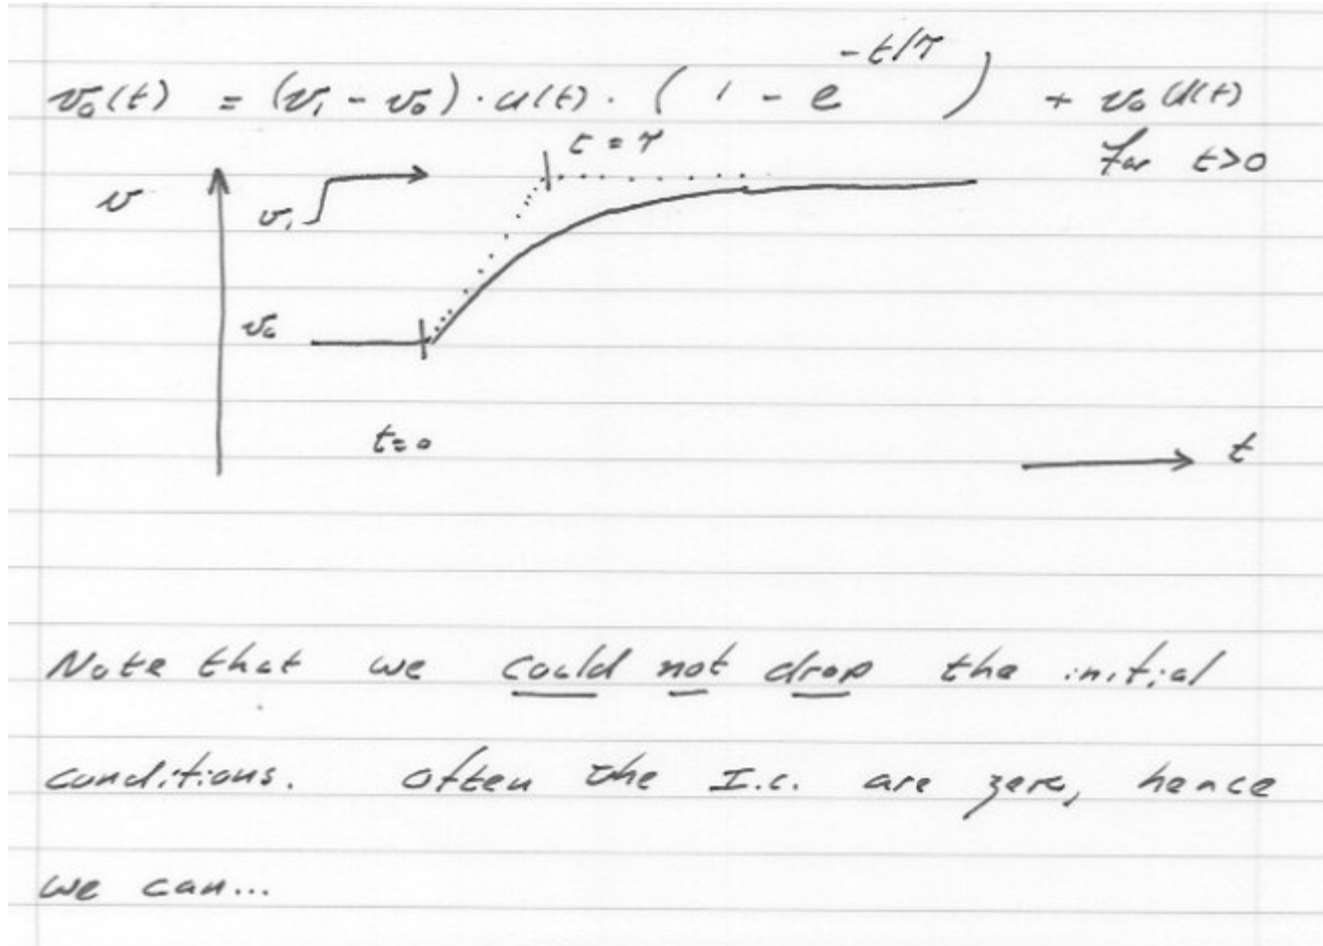 v₀(t) = (v₁ - v₀) · u(t) · ( 1 - e^{-t/τ} ) + v₀ U(t)
for t>0
t = τ
v
v₁
v₀
t=0
t
Note that we could not drop the initial
conditions. often the I.C. are zero, hence
we can...